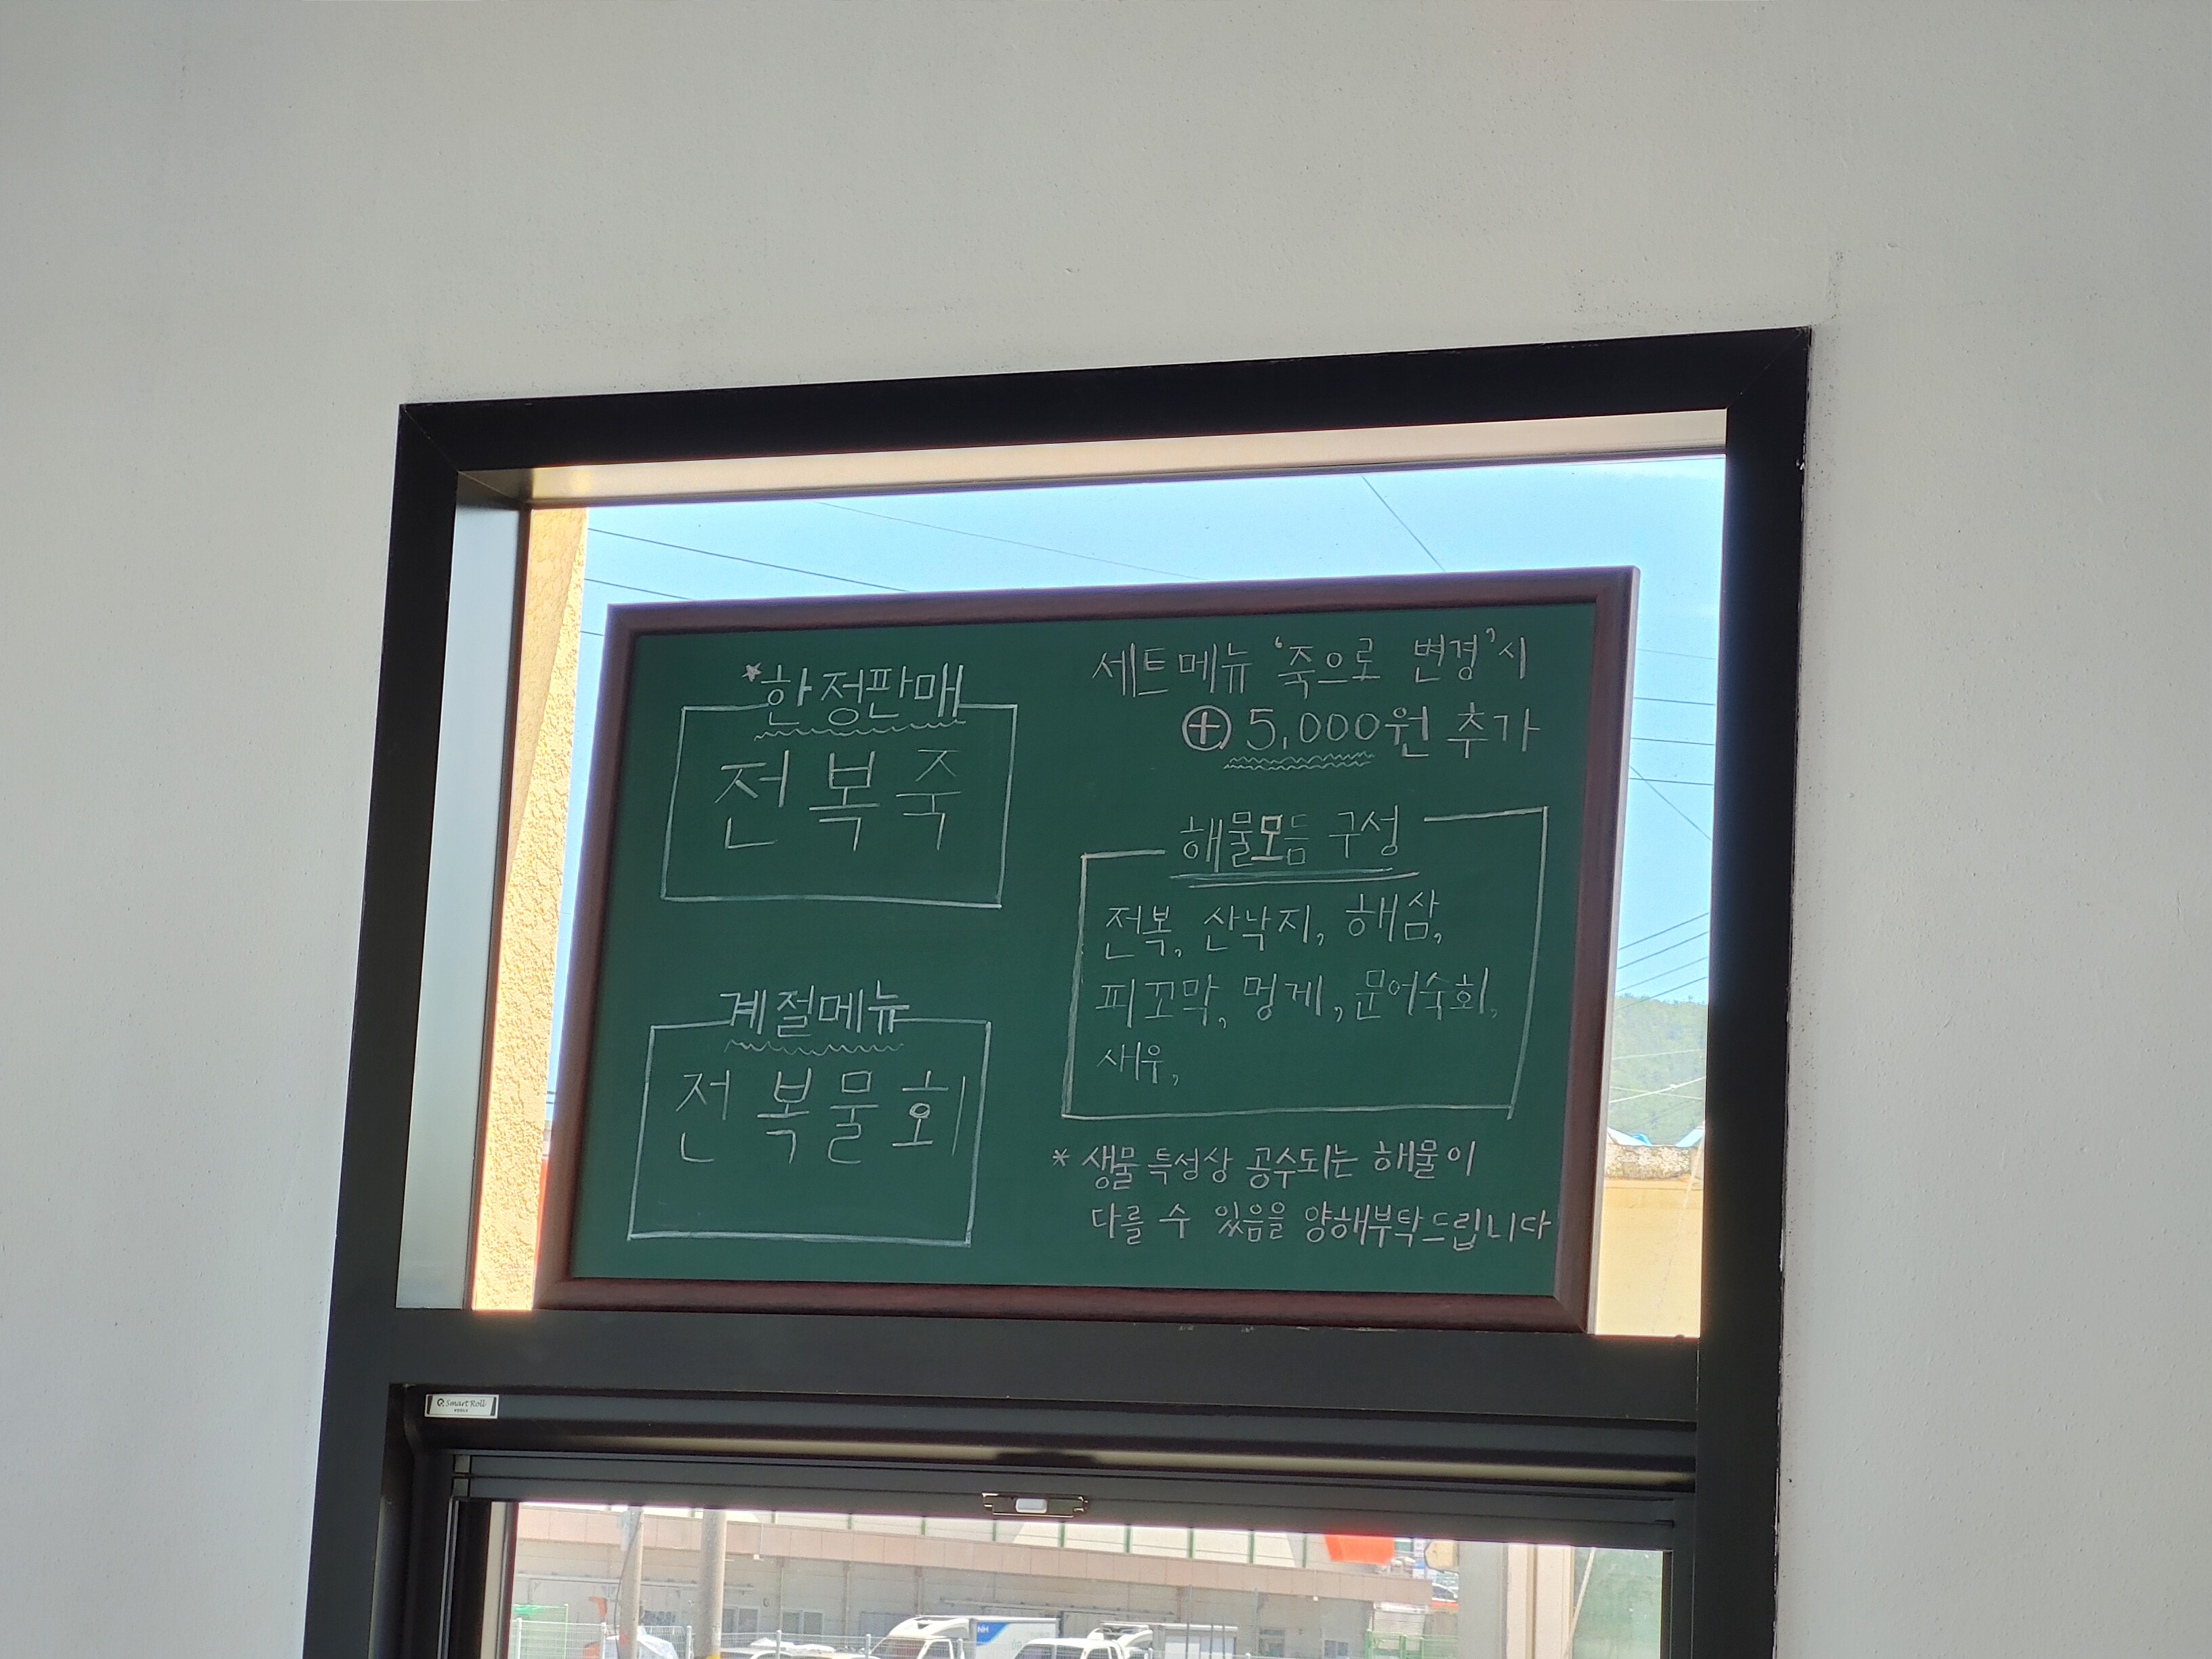 *한정판매
전복죽
계절메뉴
전복물회
세트메뉴 '죽으로 변경'시
⊕ 5,000원 추가
해물모듬 구성
전복, 산낙지, 해삼,
피꼬막, 멍게, 문어숙회,
새우,
* 생물 특성상 공수되는 해물이
다를 수 있음을 양해부탁드립니다
Smart Roll
NH